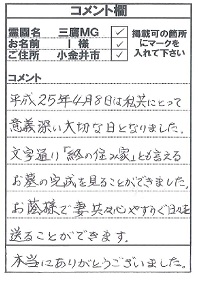 コメント欄
霊園名 三鷹MG ✓
お名前 I 様 ✓
ご住所 小金井市 ✓
掲載可の箇所
にマークを
入れて下さい
コメント
平成25年4月8日は私共にとって
意義深い大切な日となりました。
文字通り「終の住み家」とも言える
お墓の完成を見ることができました。
お蔭様で妻共々心やすらぐ日々を
送ることができます。
本当にありがとうございました。